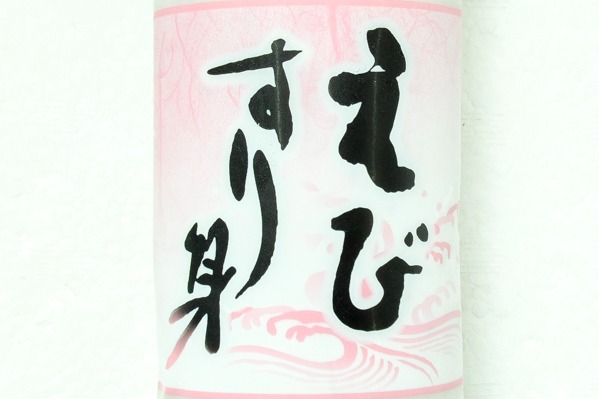 えび
すり身